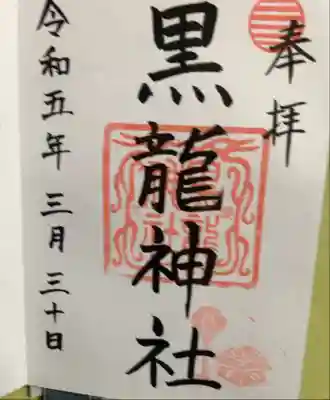 奉拝
黒龍神社
令和五年三月三十日